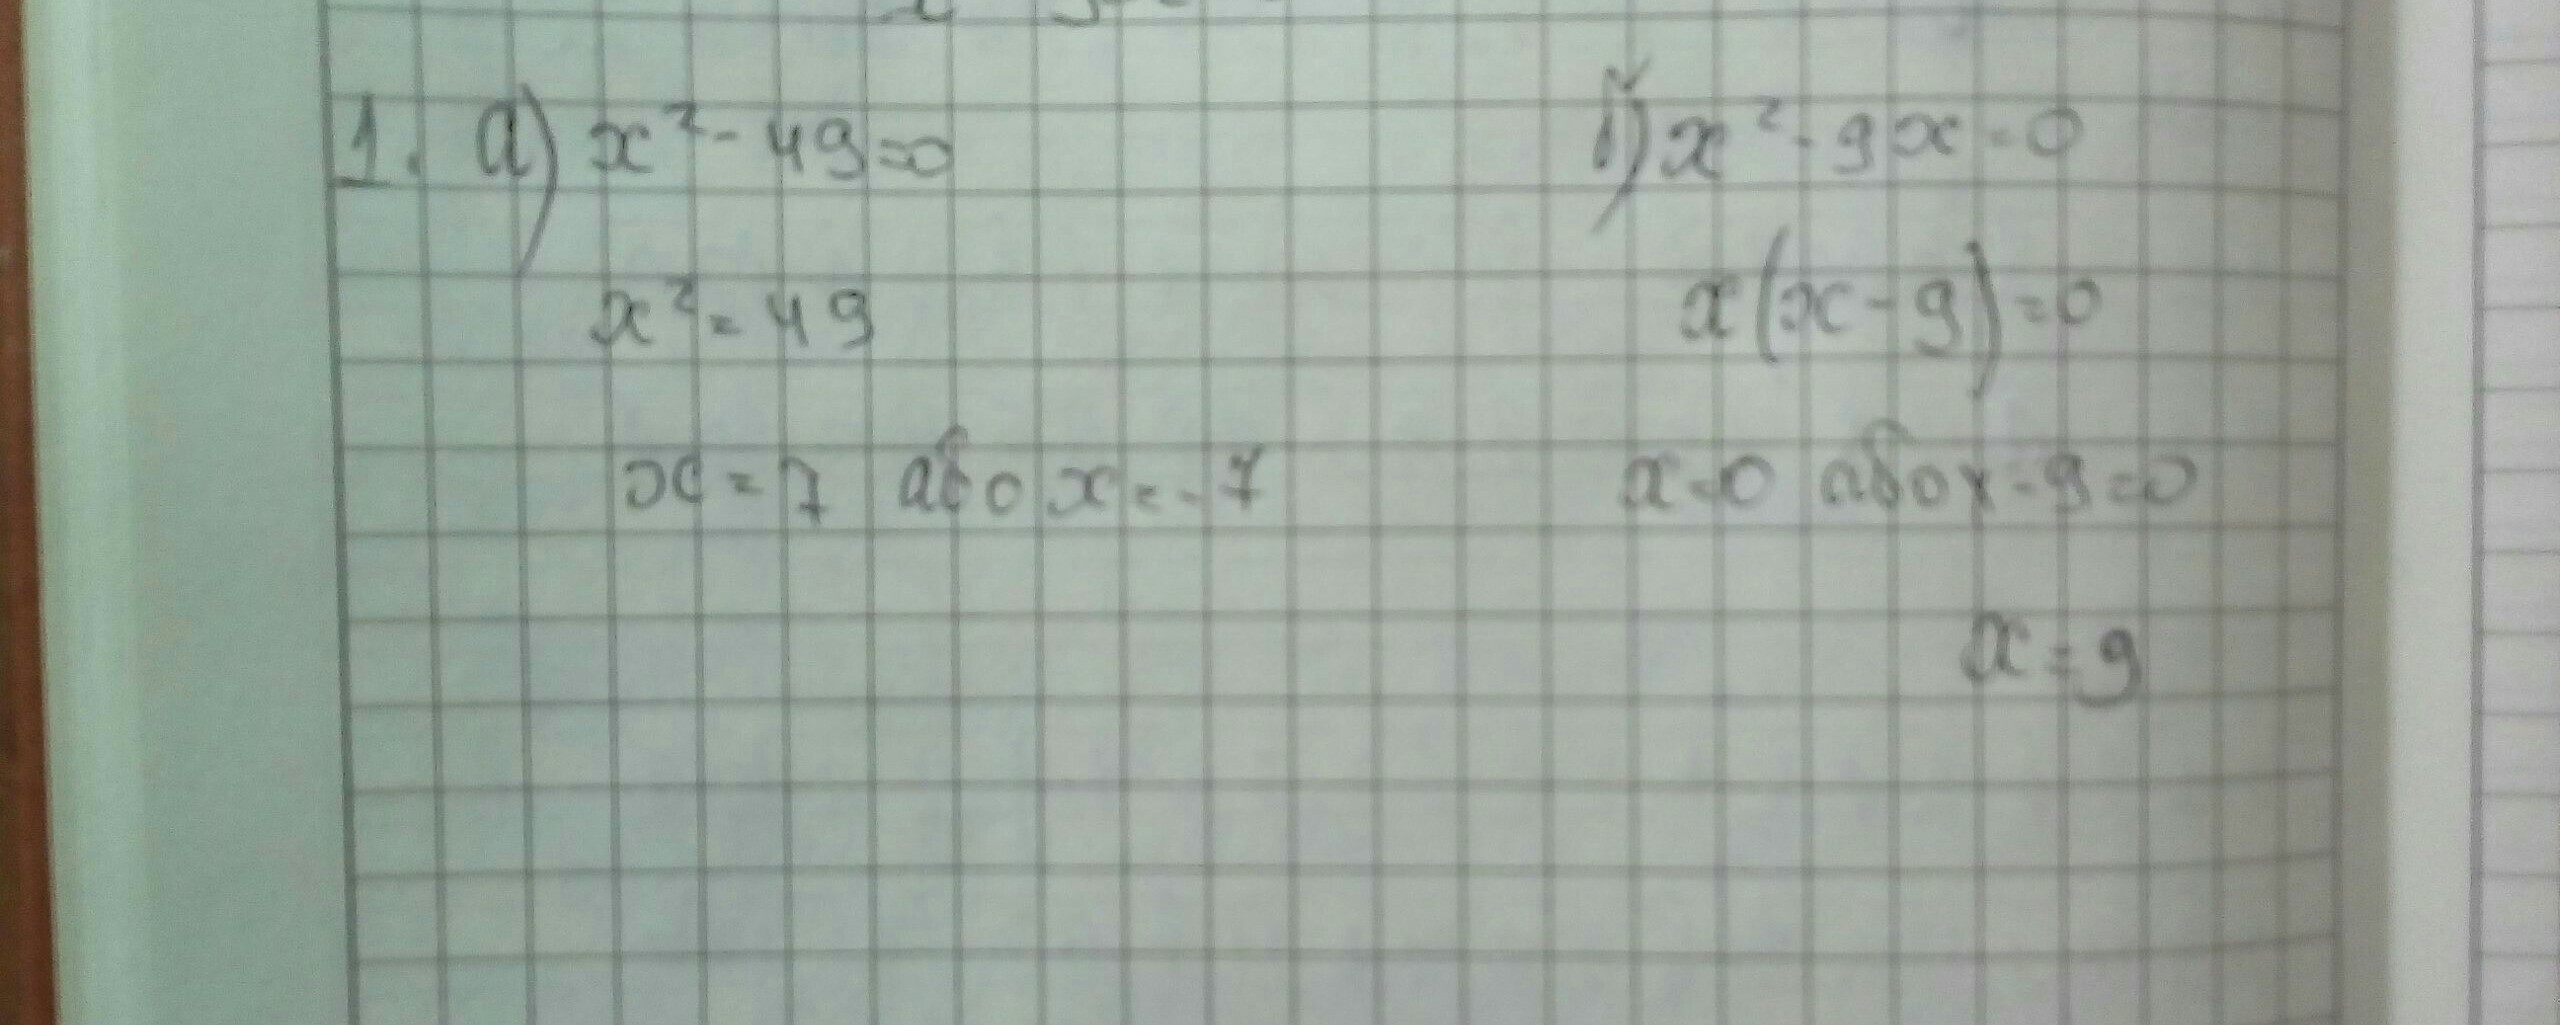 1. а) x² - 49=0
x² = 49
x = 7 або x = -7
ï) x² - 9x = 0
x(x - 9) = 0
x=0 або x - 9=0
x = 9